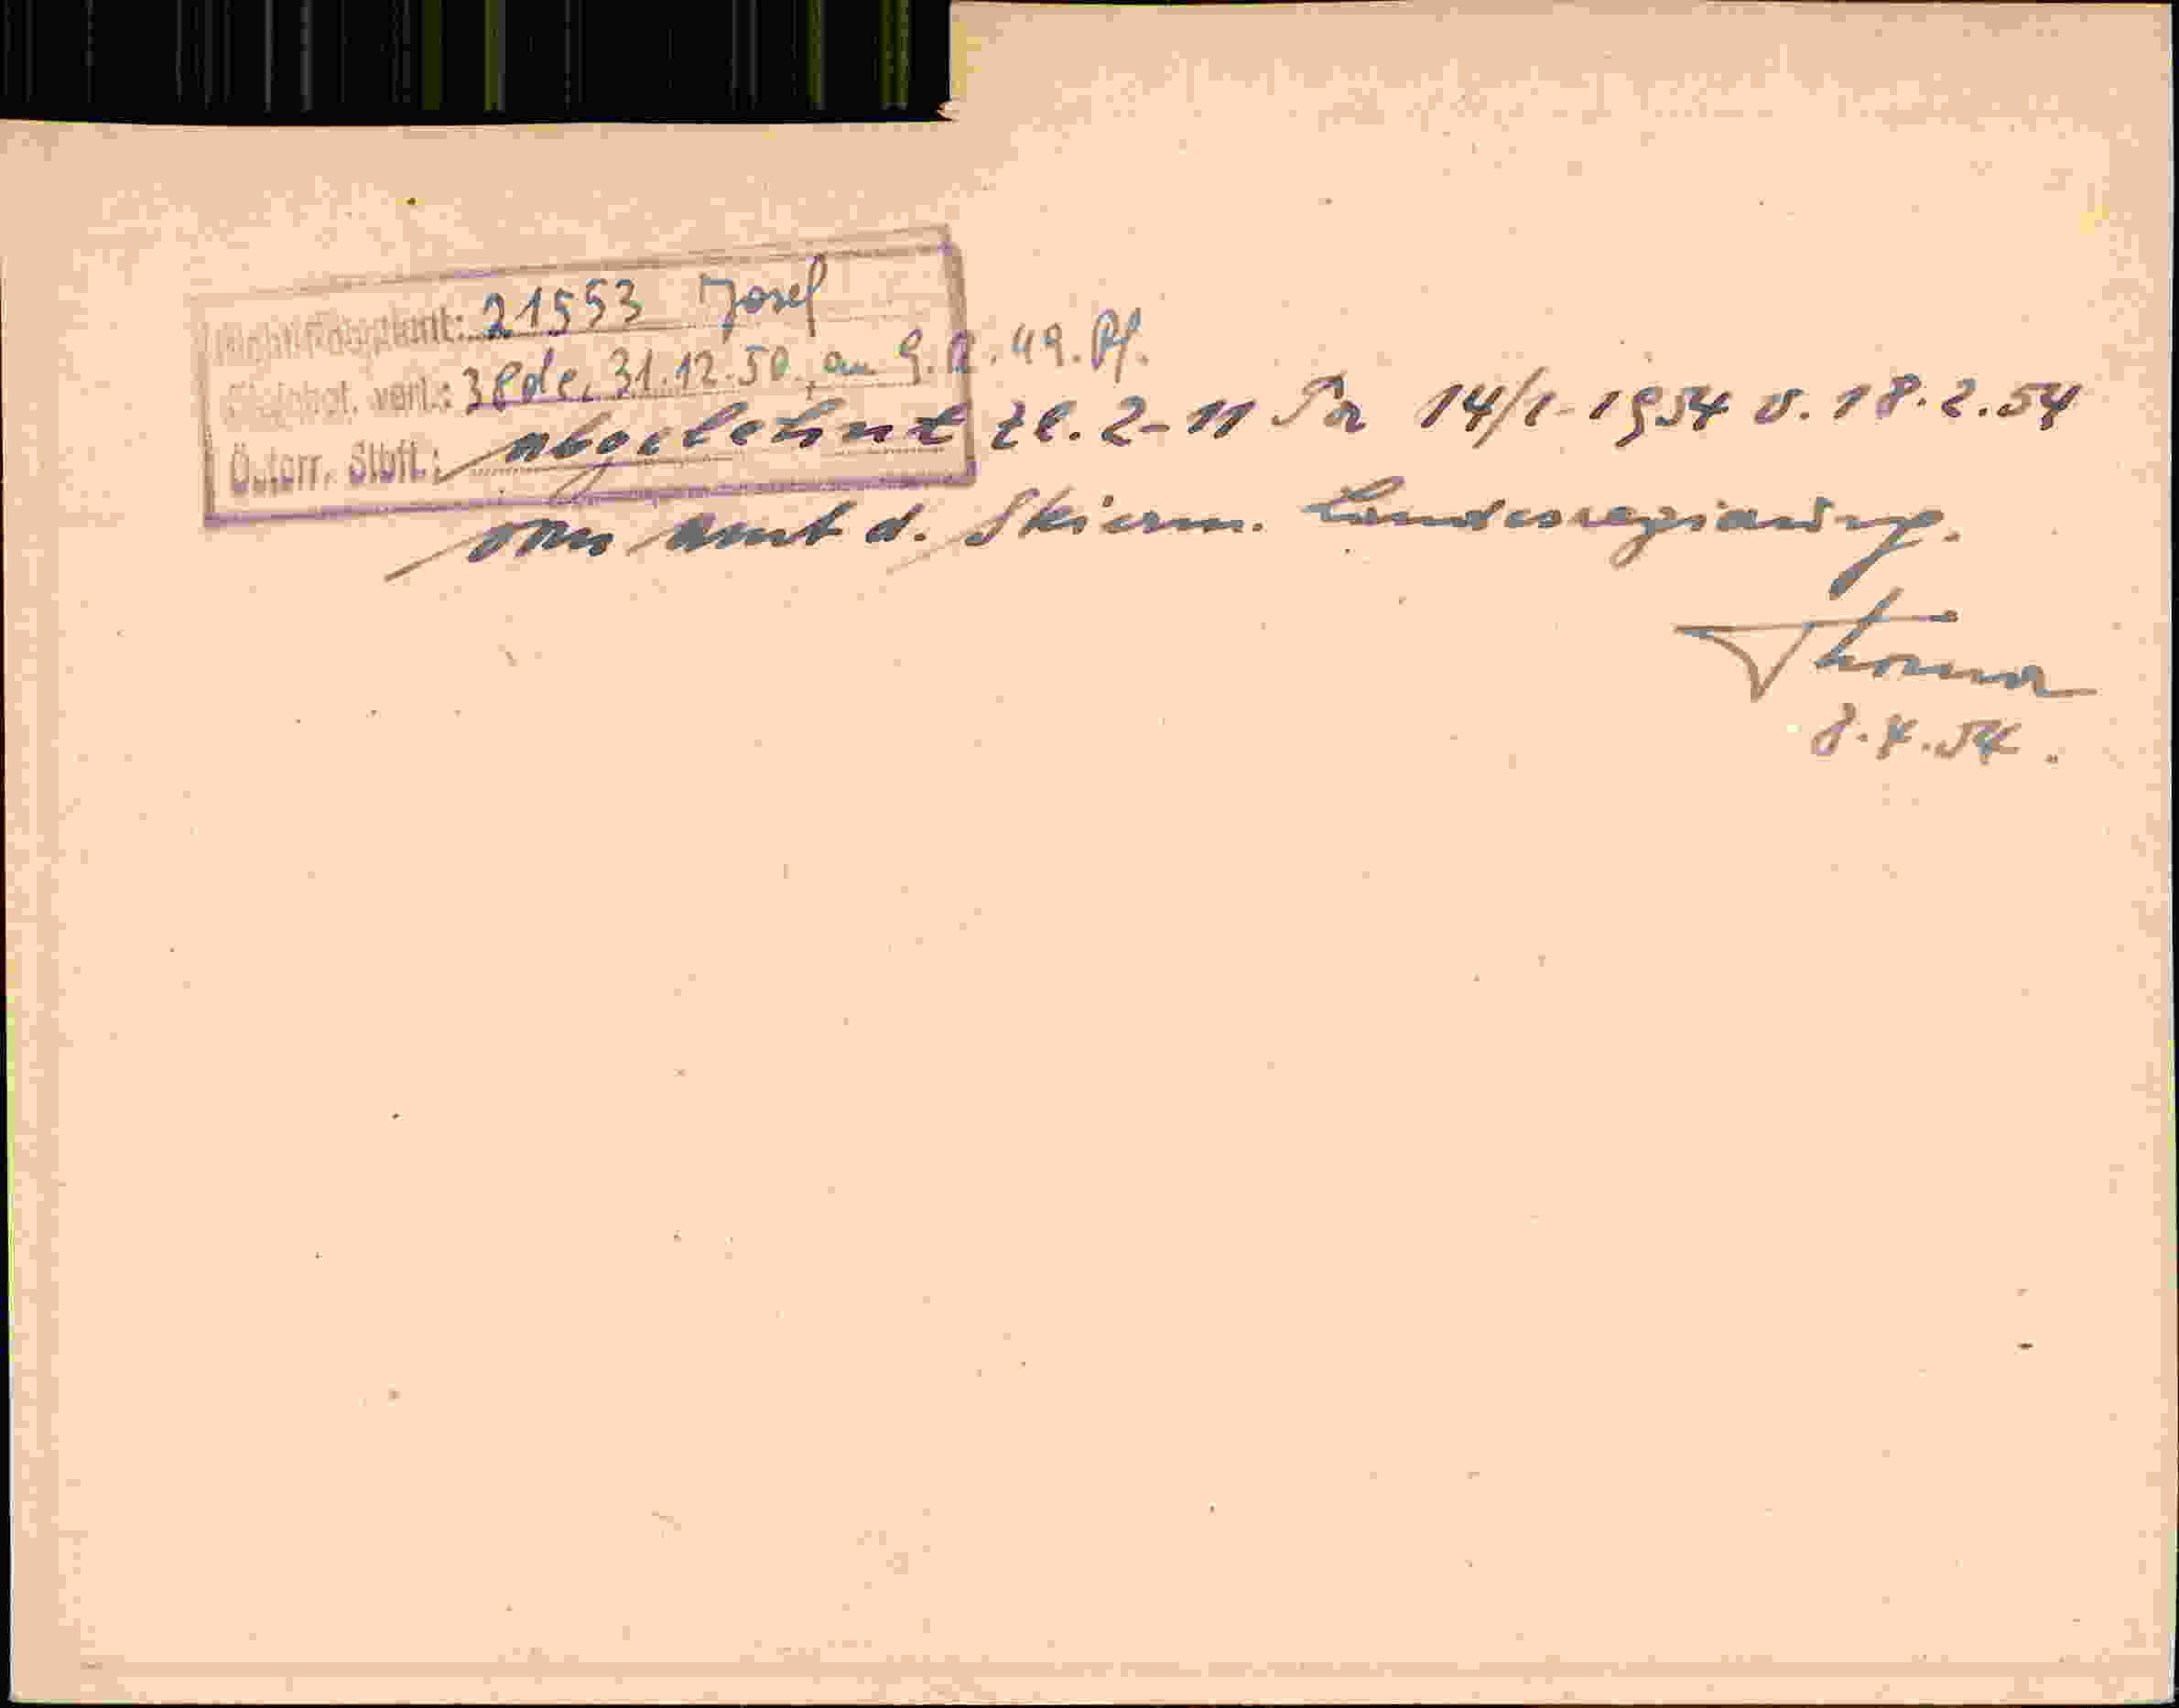 21553 Josef
31.12.50. am 9. .49. Pf.
Österr. Stbft.: abgelehnt Zl. 2-11 14/1-1954 v. 18.2.54
vom Amt d. Steierm. Landesregierung.
8.4.54.